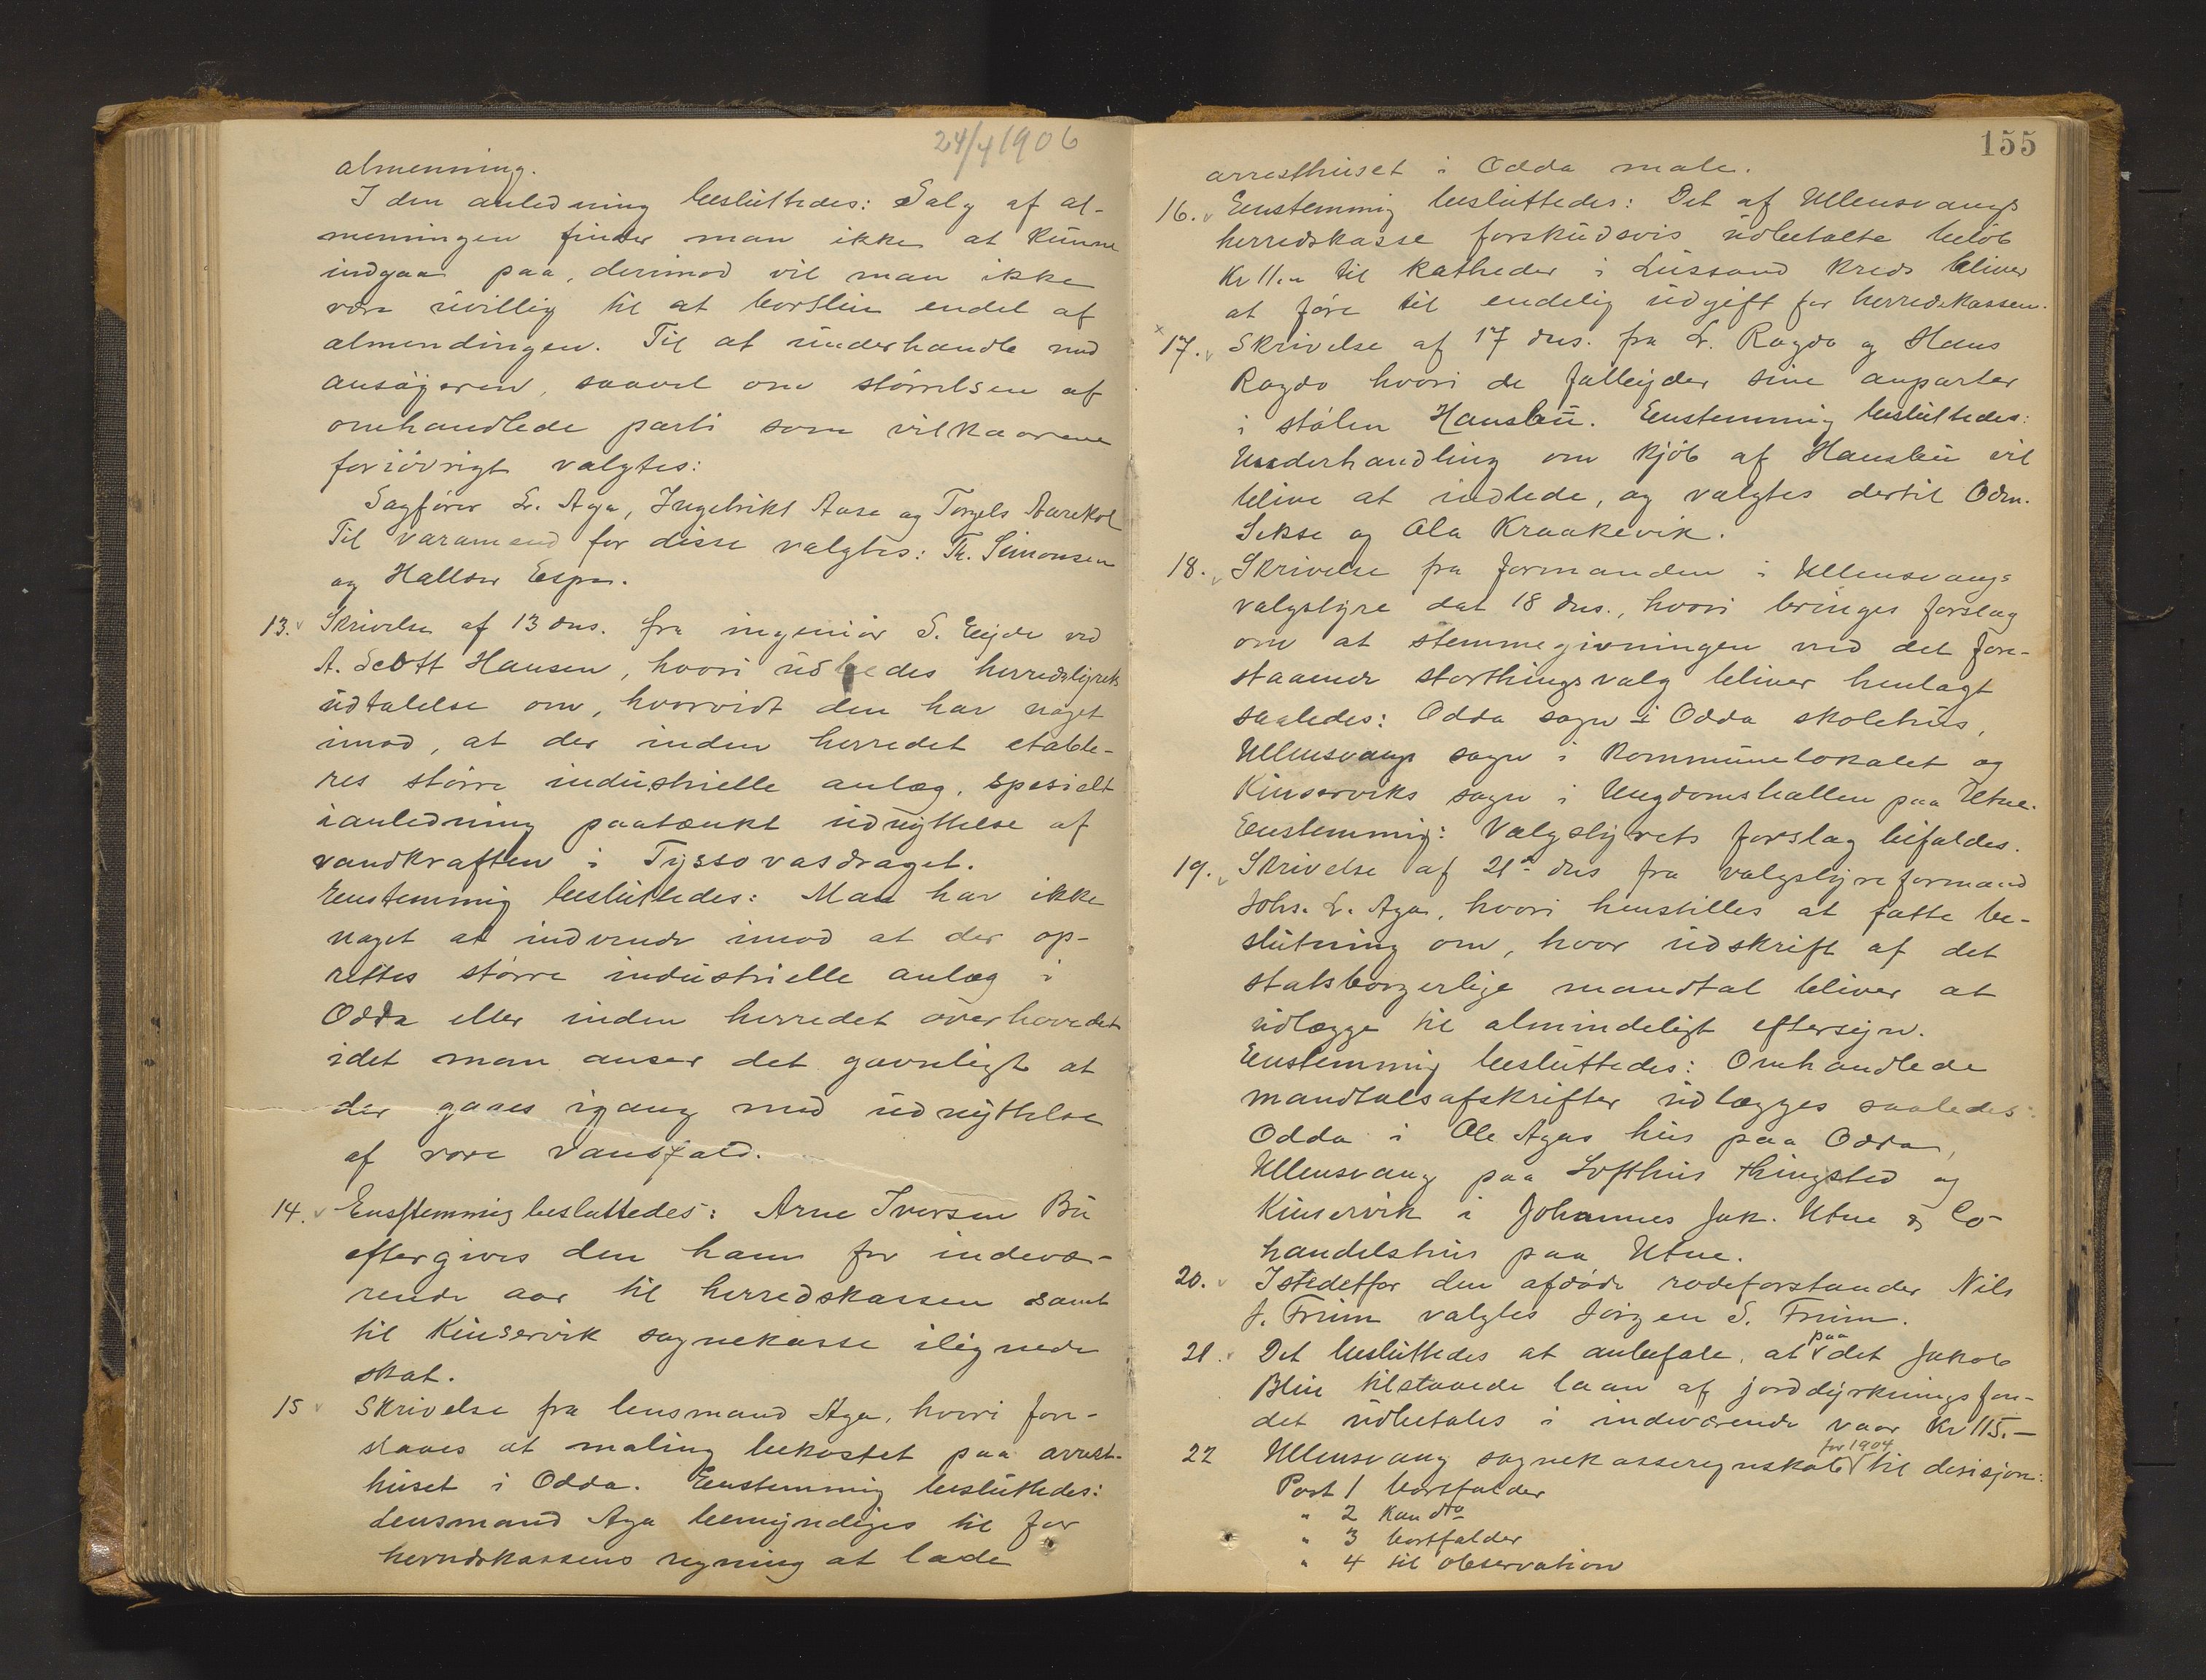 24/4 1906
almenning.
I den anledning besluttedes: Salg af al-
menningen finder man ikke at kunne
indgaa paa, derimod vil man ikke
være uvillig til at bortleie endel af
almendingen. Til at underhandle med
ansøgeren, saavel om størrelsen af
omhandlede parti som vilkaarene
foriøvrigt valgtes:
Sagfører L. Aga, Ingebrikt Aase og Torgels
Til varamænd for disse valgtes: Th. Simonsen
og Haldor Espe.
13. Skrivelse af 13 dns. fra ingeniør S. Eyde ved
A. Scott Hansen, hvori udbedes herredstyrets
udtalelse om, hvorvidt den har noget
imod, at der inden herredet etable-
res større industrielle anlæg, spesielt
ianledning paatænkt udnyttelse af
vandkraften i Tyssovasdraget.
Eenstemmig besluttedes: Man har ikke
noget at indvende imod at der op-
rettes større industrielle anlæg i
Odda eller inden herredet overhovedet
idet man anser det gavnligt at
der gaaes igang med udnyttelse
af vore vandfald.
14. Eenstemmig besluttedes: Arne Iversen Bu
eftergives den ham for indevæ-
rende aar til herredskassen samt
til Kinservik sognekasse ilignede
skat.
15 Skrivelse fra lensmand Aga, hvori fore-
slaaes at maling bekostet paa arrest-
huset i Odda. Eenstemmig besluttedes:
Lensmand Aga bemyndiges til for
herredskassens regning at lade
155
arresthuset i Odda male.
16. Eenstemmig besluttedes: Det af Ullensvangs
herredskasse forskudsvis udbetalte beløb
Kr 11.00 til katheder i Lussand kreds bliver
at føre til endelig udgift for herredskassen.
17. Skrivelse af 17 dns. fra L. Ragde og Hans
Ragde hvori de falbyder sine anparter
i stølen Hansbu. Eenstemmig besluttedes:
Underhandling om kjøb af Hansbu vil
blive at indlede, og valgtes dertil Odm.
Sekse og Ola Kraakevik.
18. Skrivelse fra formanden i Ullensvangs
valgstyre dat 18 dns., hvori bringes forslag
om at stemmegivningen ved det fore-
staaende storthingsvalg bliver henlagt
saaledes: Odda sogn i Odda skolehus,
Ullensvangs sogn i kommunelokalet og
Kinserviks sogn i Ungdomshallen paa Utne.
Eenstemmig: Valgstyrets forslag bifaldes.
19. Skrivelse af 21de dns fra valgstyreformand
Johs. L. Aga, hvori henstilles at fatte be-
slutning om, hvor udskrift af det
statsborgerlige mandtal bliver at
udlægge til almindeligt eftersyn.
Eenstemmig besluttedes: Omhandlede
mandtalsafskrifter udlægges saaledes:
Odda i Ole Agas hus paa Odda,
Ullensvang paa Lofthus thingsted og
Kinservik i Johannes Jak. Utne & Co-
handelshus paa Utne.
20. Istedetfor den afdøde rodeforstander Nils
J. Freim valgtes Jørgen S. Freim.
21. Det besluttedes at anbefale, at paa det Jakob
Bleie tilstaaede laan af jorddyrkningsfon-
det udbetales i indeværende vaar Kr 115.-
22 Ullensvang sognekasseregnskab for 1904 til desisjon:
Post 1 bortfalder
" 2 Kan dto
" 3 bortfalder
" 4 til observation